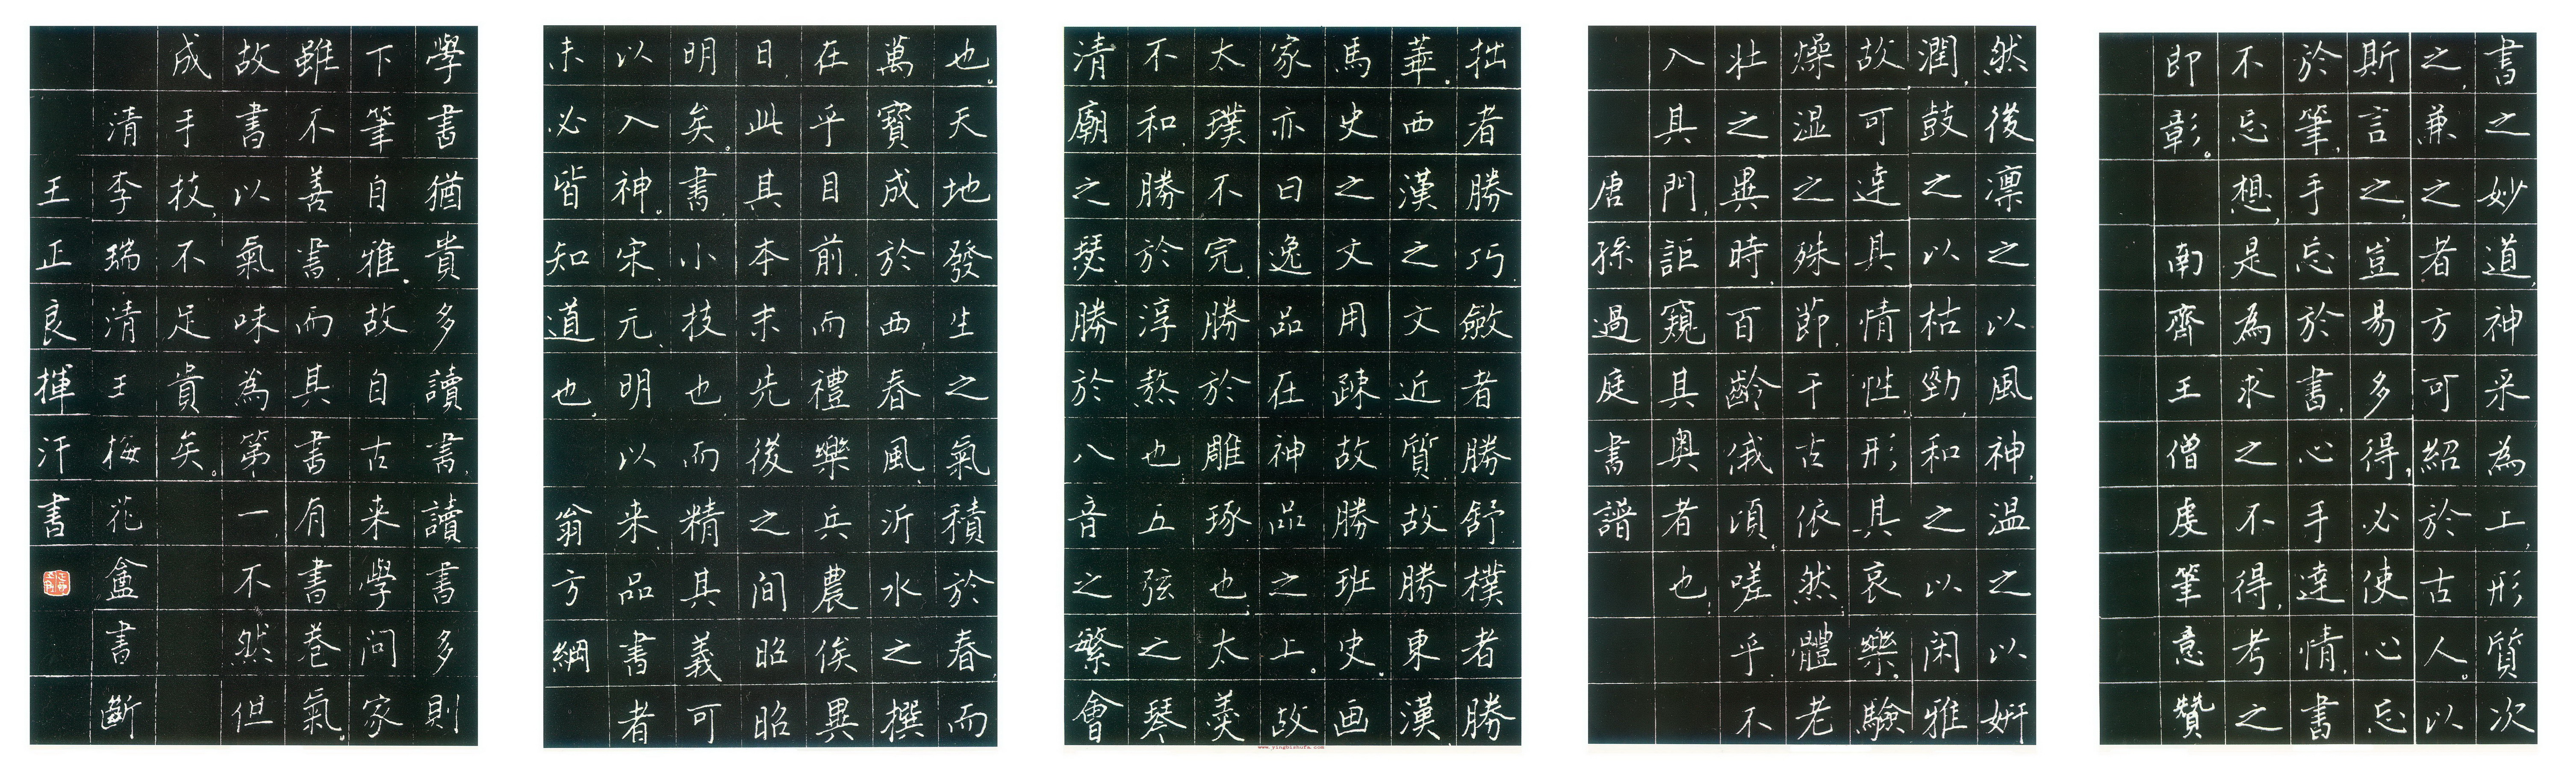 書之妙道,神采為上,形質次
之,兼之者方可紹於古人。以
斯言之,豈易多得,必使心忘
於筆,手忘於書,心手達情,書
不忘想,是為求之不得,考之
即彰。 南齊王僧虔筆意贊
然後凛之以風神,温之以妍
潤,鼓之以枯勁,和之以閑雅
故可達其情性,形其哀樂,驗
燥湿之殊節,千古依然,體老
壯之異時,百齡俄頃,嗟乎,不
入其門,詎窺其奥者也,
唐孫過庭書譜
拙者勝巧,斂者勝舒,樸者勝
華。西漢之文近質,故勝東漢
馬史之文用疎,故勝班史。画
家亦曰逸品在神品之上。故
太璞不完,勝於雕琢也,太羹
不和,勝於淳熬也,五弦之琴
清廟之瑟,勝於八音之繁會
也。天地發生之氣積於春,而
萬寶成於西,春風沂水之撰
在乎目前,而禮樂兵農俟異
日,此其本末先後之間昭昭
明矣。書,小技也,而精其義可
以入神。宋元明以来,品書者
未必皆知道也, 翁方綱
學書猶貴多讀書,讀書多則
下筆自雅。故自古来學問家
雖不善書,而其書有書卷氣。
故書以氣味為第一,不然但
成手技,不足貴矣。
清李瑞清王梅花盦書斷
王正良揮汗書
www.yingbishufa.com